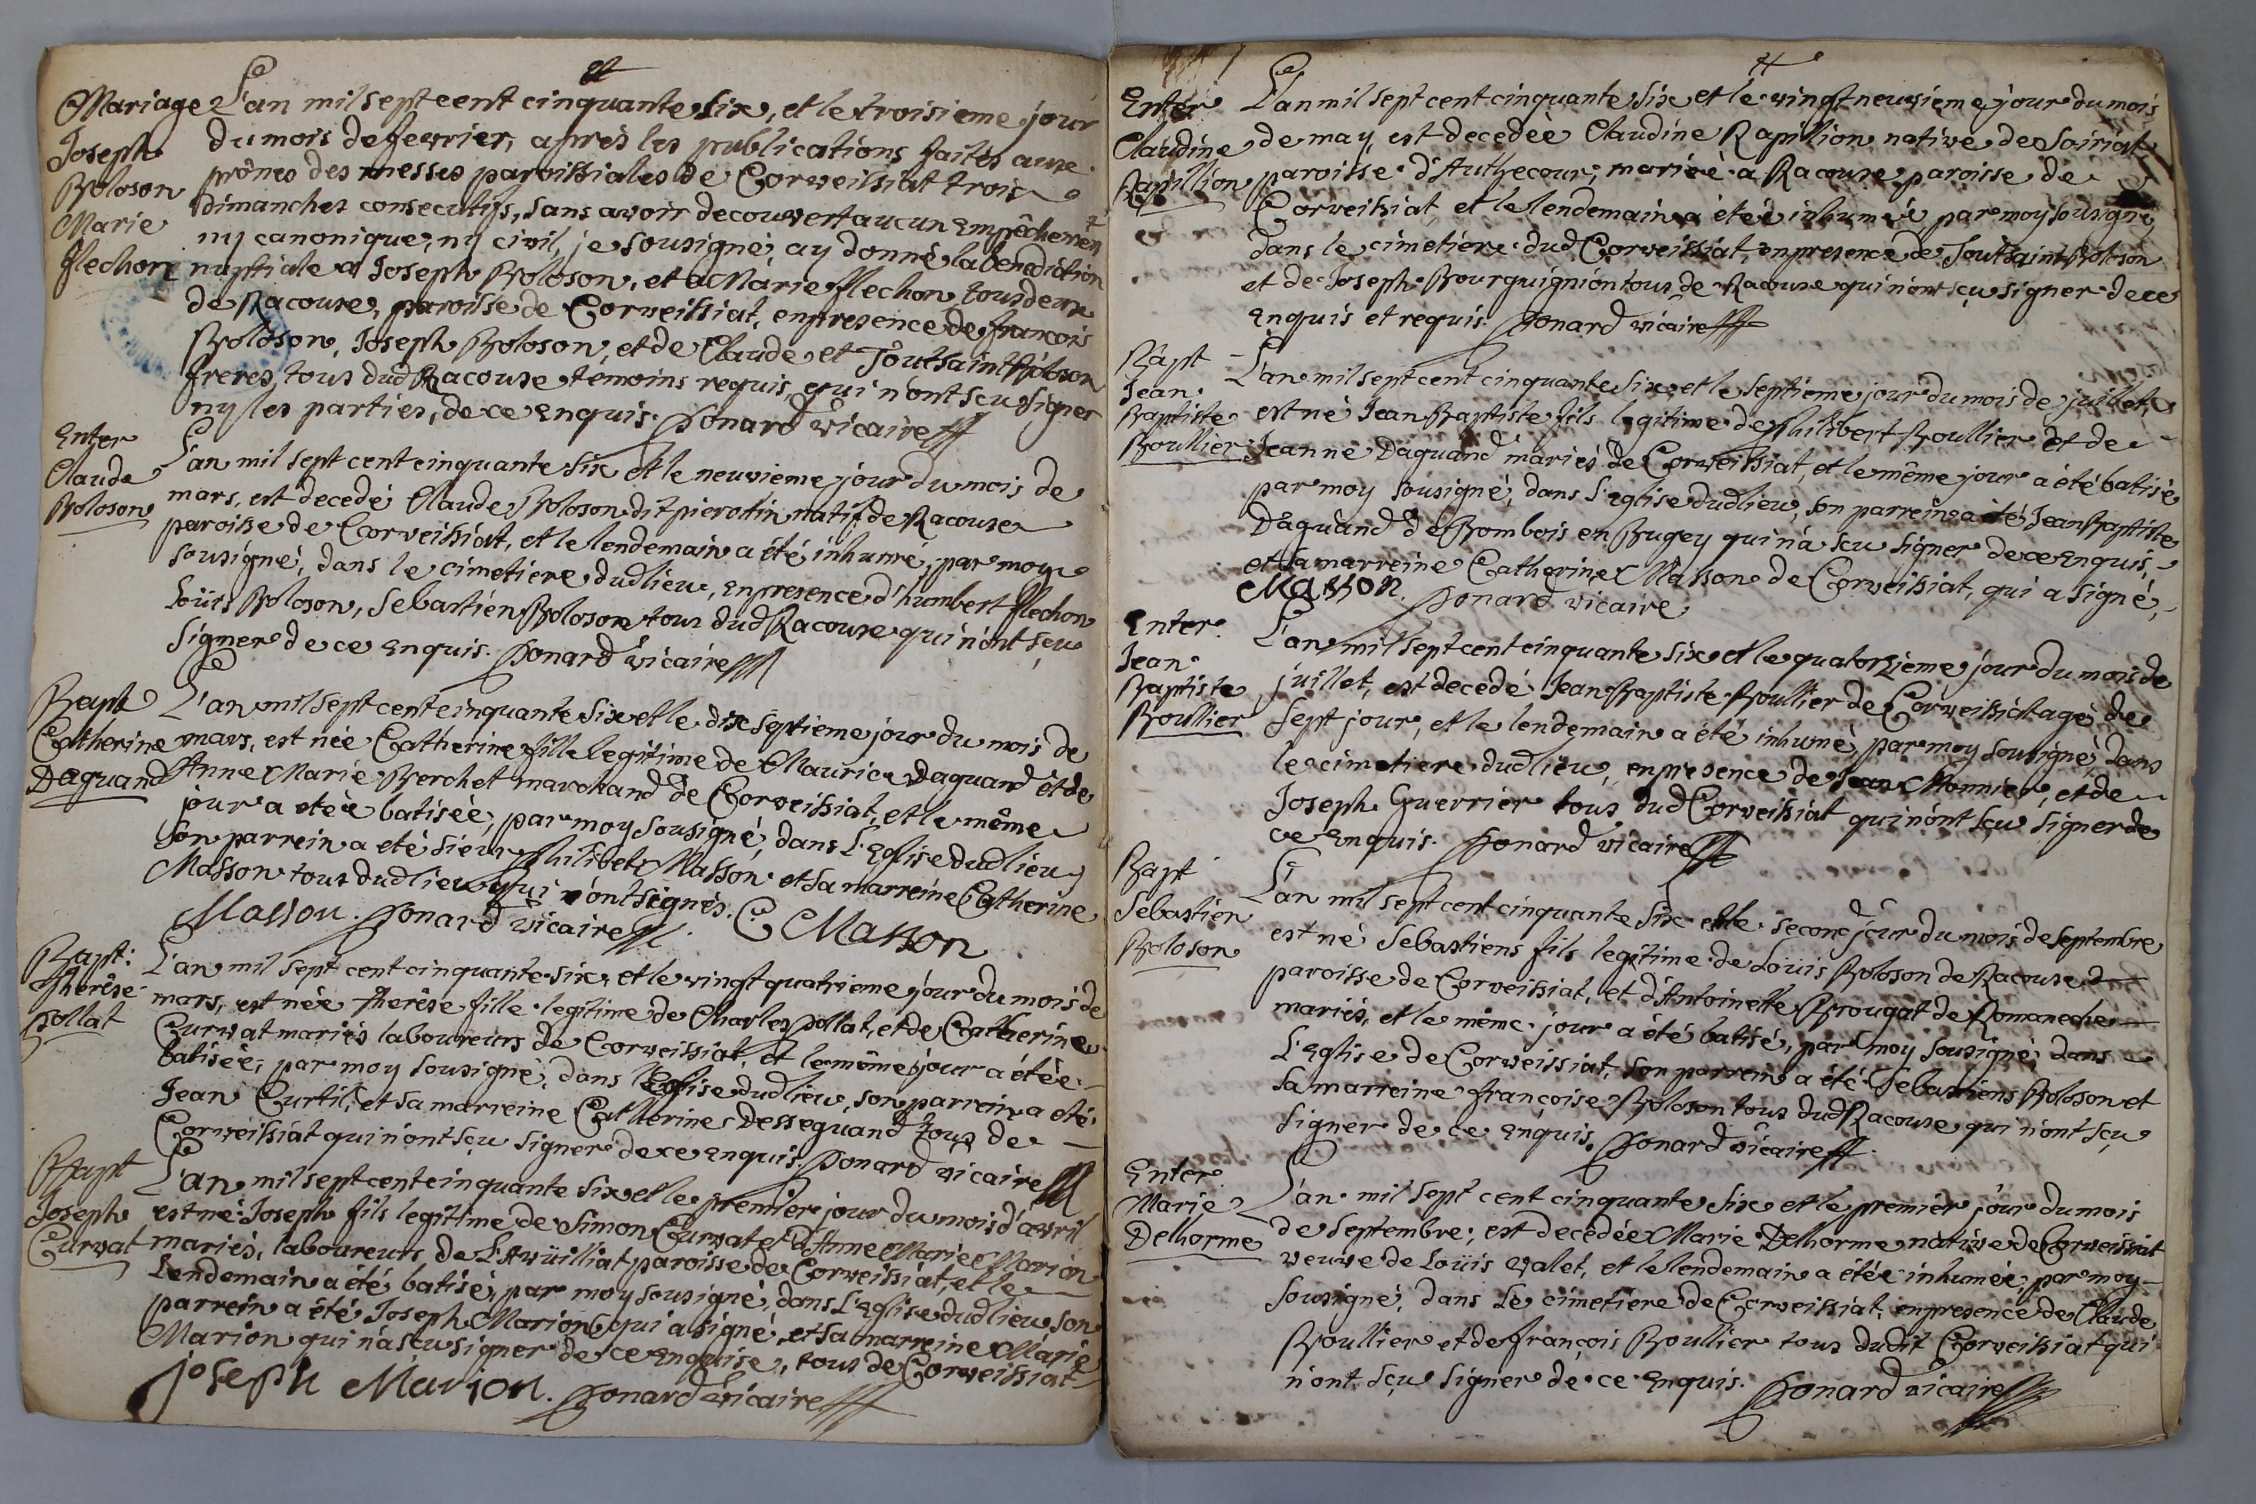 Mariage
Joseph
Boloson
Marie
flechon
L'an mil sept cent cinquante six, et le troisieme jour
du mois de fevrier, aprés les publications faites aux
prônes des messes paroissiales de Corveissiat trois
dimanches consecutifs, sans avoir decouvert aucun empêchement
ny canonique, ny civil, je sousigné, ay donné la benediction
nuptiale a Joseph Boloson, et a Marie flechon tous deux
de Racouze, paroisse de Corveissiat, en presence de francois
Boloson, Joseph Boloson, et de Claude, et Toutsaint Boloson
freres, tous dud Racouze temoins requis, qui n'ont scu signer
ny les parties, de ce enquis. Ponard vicaire
Enter
Claude
Boloson
L'an mil sept cent cinquante six et le neuvieme jour du mois de
mars, est decedé Claude Boloson dit pierotin natif de Racouze
paroisse de Corveissiat, et le lendemain a été inhumé, par moy
sousigné, dans le cimetiere dud lieu, en presence d'humbert flechon
Loüis Boloson, Sebastien Boloson tous dud Racouze qui n'ont sçu
signer de ce enquis. Ponard vicaire
Bapt
Catherine
Daguand
L'an mil sept cent cinquante six et le dix septieme jour du mois de
mars, est née Catherine fille legitime de Maurice Daguand et de
Anne Marie Berchet marchand de Corveissiat, et le même
jour a etée batisée, par moy sousigné, dans L'Eglise dud lieu,
son parrein a eté sieur philibet Masson et sa marreine Catherine
Masson tous dud lieu qui ont signés.
Masson. Ponard vicaire. C Masson
Bapt:
Therèse
pollat
L'an mil sept cent cinquante six, et le vingt quatrieme jour du mois de
mars, est née therêse fille legitime de Charles pollat, et de Catherine
Curvat mariés laboureurs de Corveissiat, et le même jour a étée
batisée, par moy sousigné, dans l'Eglise dud lieu, son parrein a eté
Jean Curtil, et sa marreine Catherine Desseguand tous de
Corveissiat qui n'ont sçu signer de ce enquis. Ponard vicaire
Bapt
Joseph
Curvat
L'an mil sept cent cinquante six et le premier jour du mois d'avril
est né Joseph fils legitime de Simon Curvat et d'Anne Marie Marion
mariés, laboureurs de L'Avüilliat paroisse de Corveissiat, et le
Lendemain a été batisé, par moy sousigné, dans L'Eglise dud lieu son
parrein a été Joseph Marion qui a signé, et sa marreine Marie
Marion qui n'a scu signer de ce enquise, tous de Corveissiat
joseph Marion. Ponard vicaire
Enter
Claudine
Rapillion
L'an mil sept cent cinquante six et le vingt neuvieme jour du mois
de may, est decedée Claudine Rapillion native de Soiriat
paroisse d'Authecour, mariée a Racouze paroisse de
Corveissiat, et le lendemain a étée inhumée par moy sousigné,
dans le cimetiere dud Corveissiat, en presence de Toutsaint Boloson
et de Joseph Bourguignion tous de Racouze qui n'ont sçu signer de ce
enquis et requis. Ponard vicaire
Bapt
Jean
Baptiste
Boullier
L'an mil sept cent cinquante six et le septieme jour du mois de juillet,
est né Jean Baptiste fils legitime de philibert Boullier et de
Jeanne Daguand mariés de Corveissiat, et le même jour a été batisé
par moy sousigné, dans L'Eglise dud lieu, son parrein a été Jean Baptiste
Daguand de Bombois en Bugey qui n'a scu signer de ce enquis,
et sa marreine Catherine Masson de Corveissiat, qui a signé,
Masson. Ponard vicaire
Enter
Jean
Baptiste
Boullier
L'an mil sept cent cinquante six et le quatorzieme jour du mois de
juillet, est decedé Jean Baptiste Boullier de Corveissiat agé de
sept jour, et le lendemain a été inhumé, par moy sousigné, dans
le cimetiere dud lieu, en presence de Jean Monnier, et de
Joseph Guerrier tous dud Corveissiat qui n'ont sçu signer de
ce enquis. Ponard vicaire
Bapt
Sebastien
Boloson
L'an mil sept cent cinquante six et le second jour du mois de septembre
est né Sebastiens fils legitime de Loüis Boloson de Racouze
paroisse de Corveissiat, et d'Antoinette Brougat de Romaneche
mariés, et le même jour a été batisé, par moy sousigné, dans
L'Eglise de Corveissiat, son parrein a été Sebastiens Boloson et
sa marreine françoise Boloson tous dud Racouze qui n'ont sçu
signer de ce enquis. Ponard vicaire
Enter
Marie
Delhorme
L'an mil sept cent cinquante six et le premier jour du mois
de septembre, est decedée Marie Delhorme native de Corveissiat
veuve de Loüis valet, et le lendemain a étée inhumée, par moy
sousigné, dans Le cimetiere de Corveissiat, en presence de Claude
Boullier et de françois Boullier tous dudit Corveissiat qui
n'ont sçu signer de ce enquis. Ponard vicaire